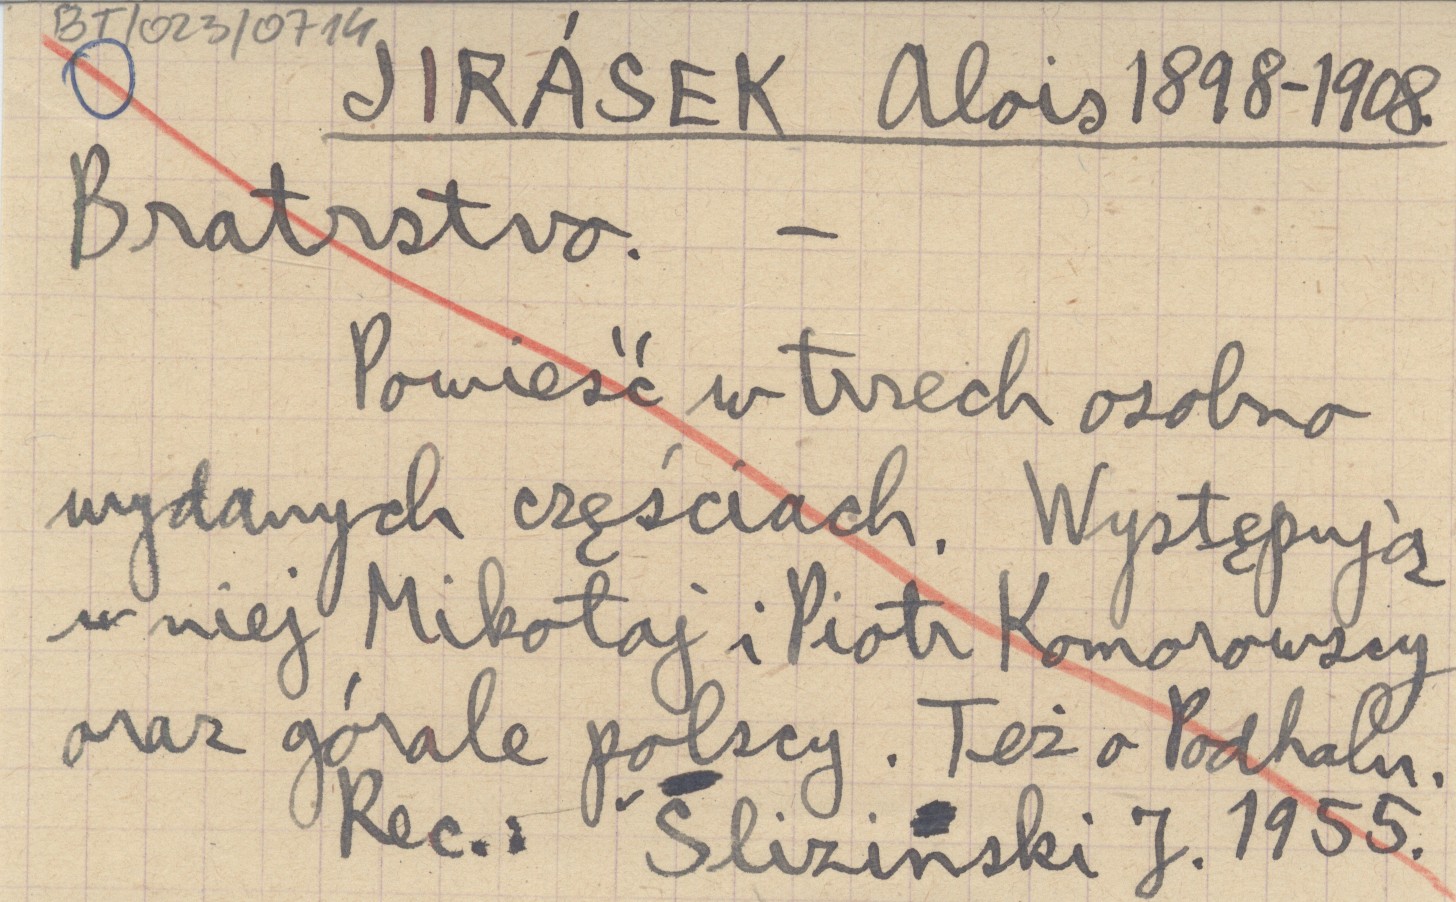 BT/023/0714
JIRÁSEK Alois 1898-1908.
Bratrstvo. –
Powieść w trzech osobno
wydanych częściach. Występują
w niej Mikołaj i Piotr Komorowscy
oraz górale polscy. Też o Podhalu.
Rec.: Slizinski J. 1955.